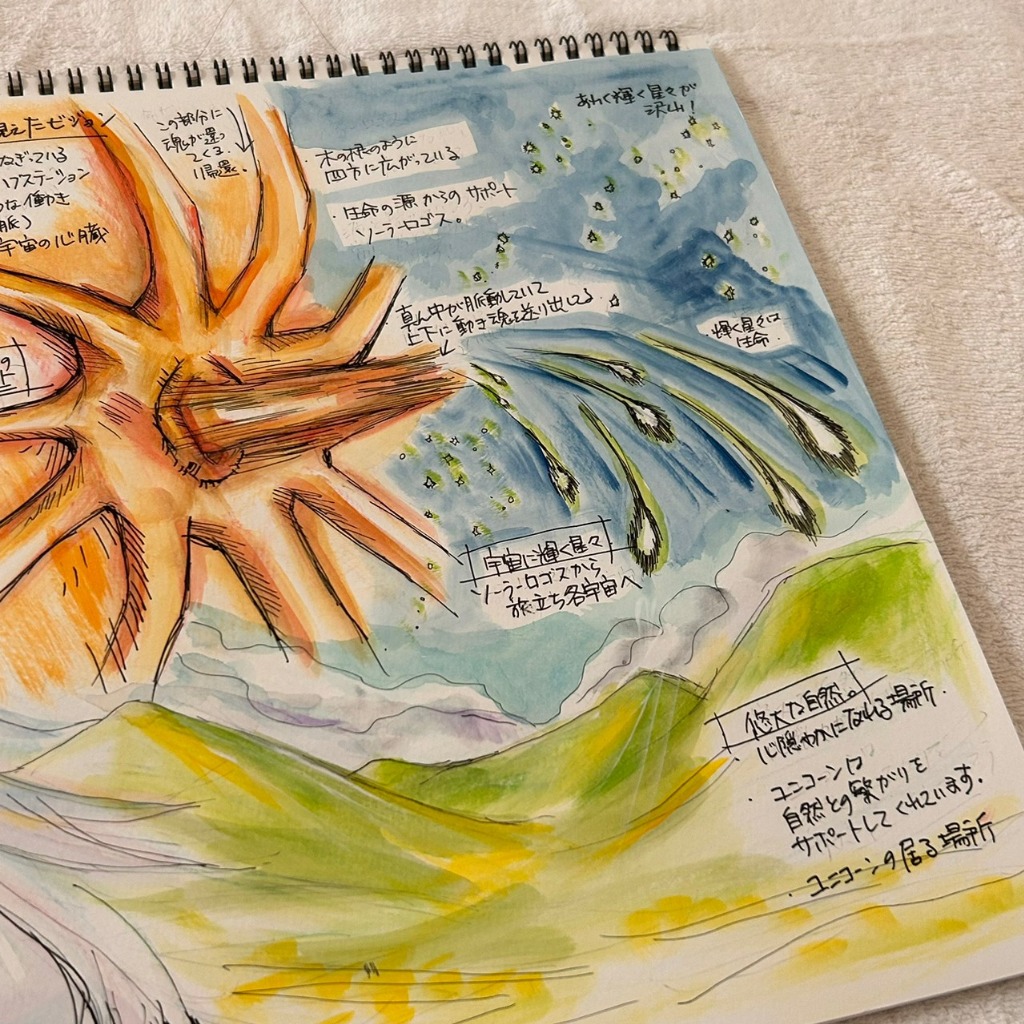 見えたビジョン
ハブステーション
宇宙の心臓
この部分に
魂が還っ
てくる
り帰還。
・木の根のように
四方に広がっている
・生命の源からのサポート
ソーラーロゴス。
あわく輝く星々が
沢山!
真ん中が脈動していて
上下に動き魂を送り出してる
輝く星々は
生命
宇宙に輝く星々
ソーラーロゴスから
旅立ち各宇宙へ
悠大な自然。
心穏やかになれる場所.
・ユニコーンは
自然との繋がりを
サポートしてくれています.
・ユニコーンの居る場所